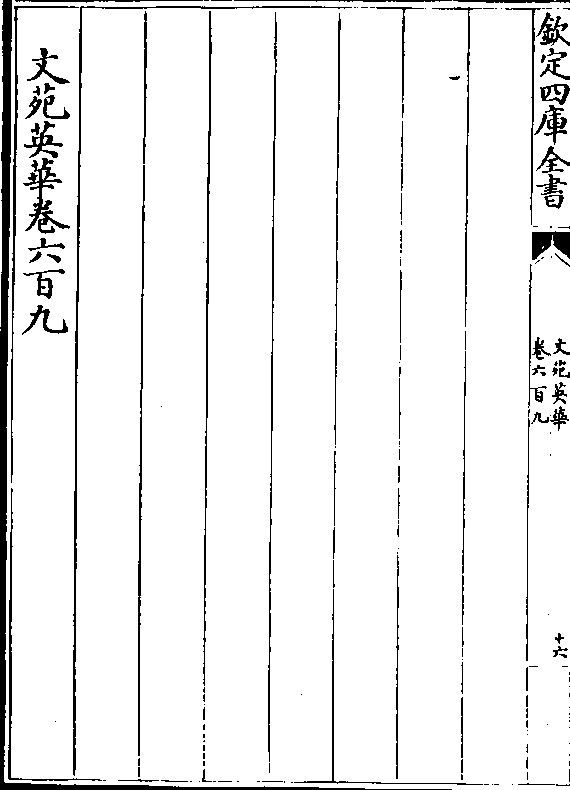 欽定四庫全書
文苑英華
卷六百九
十六
文苑英華卷六百九